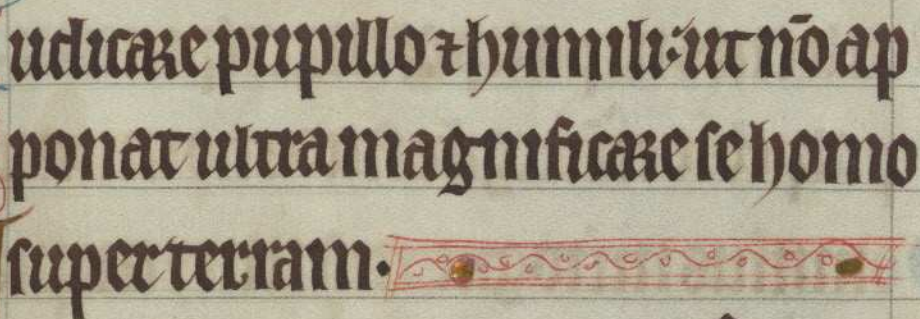 udicare pupillo ⁊ humili ut nō ap
ponat ultra magnificare se homo
super terram.